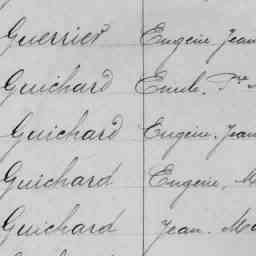 Guerrier Eugène, Jean
Guichard Emile, Fre
Guichard Eugène, Jean
Guichard Eugène, M
Guichard Jean, Ma